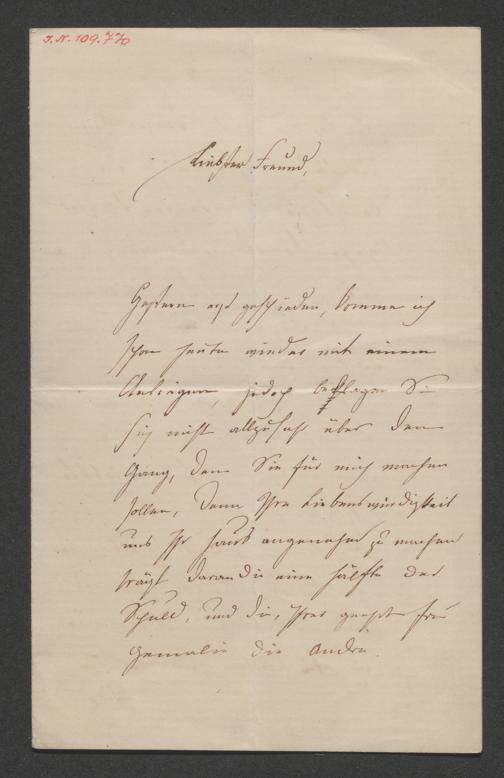 I.N. 109.770
Liebster Freund,
Gestern erst geschieden, komme ich
schon heute wieder mit einem
Anliegen, jedoch beklagen Sie
sich nicht allzusehr über den
Gang, den Sie für mich machen
sollen, denn Ihre Liebenswürdigkeit
uns Ihr Haus angenehm zu machen
trägt daran die eine Hälfte der
Schuld, und die, Ihrer geehrten Frau
Gemalin die Andre.